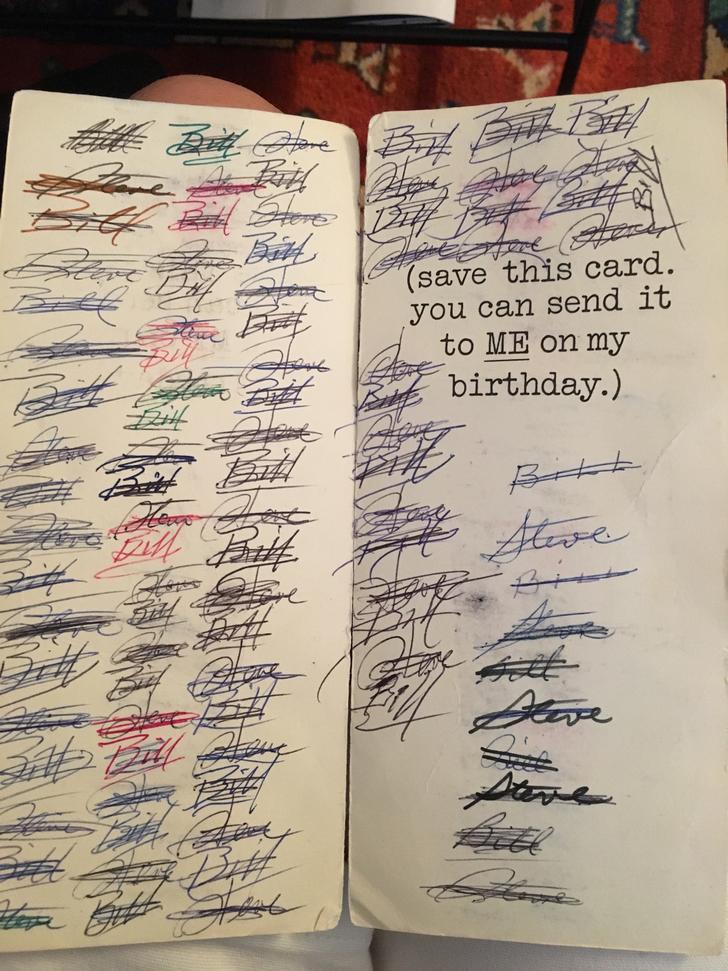 Bill Bill Steve
Steve Steve Bill
Bill Bill Steve
Steve Steve Bill
Bill Bill Steve
Steve Steve Bill
Bill
Steve
Bill Steve Bill
Bill
Steve Steve Steve
Bill Bill Bill
Steve Steve Steve
Bill Bill
Bill Steve Steve
Steve Bill Bill
Bill Steve Steve
Bill
Steve Steve Bill
Bill Bill Steve
Steve Steve Bill
Bill Bill Steve
Steve Steve Bill
Bill Bill Steve
Bill Bill Bill
Steve Steve Steve
Bill Bill Bill Bill
Steve Steve Steve
(save this card.
you can send it
to ME on my
birthday.)
Steve
Bill
Steve
Bill
Steve
Bill
Steve
Bill
Steve
Bill
Bill
Steve
Bill
Steve
Bill
Steve
Bill
Steve
Bill
Steve